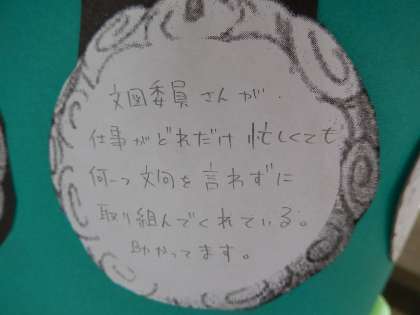 文図委員さんが、
仕事がどれだけ忙しくても
何一つ文句を言わずに
取り組んでくれている。
助かってます。